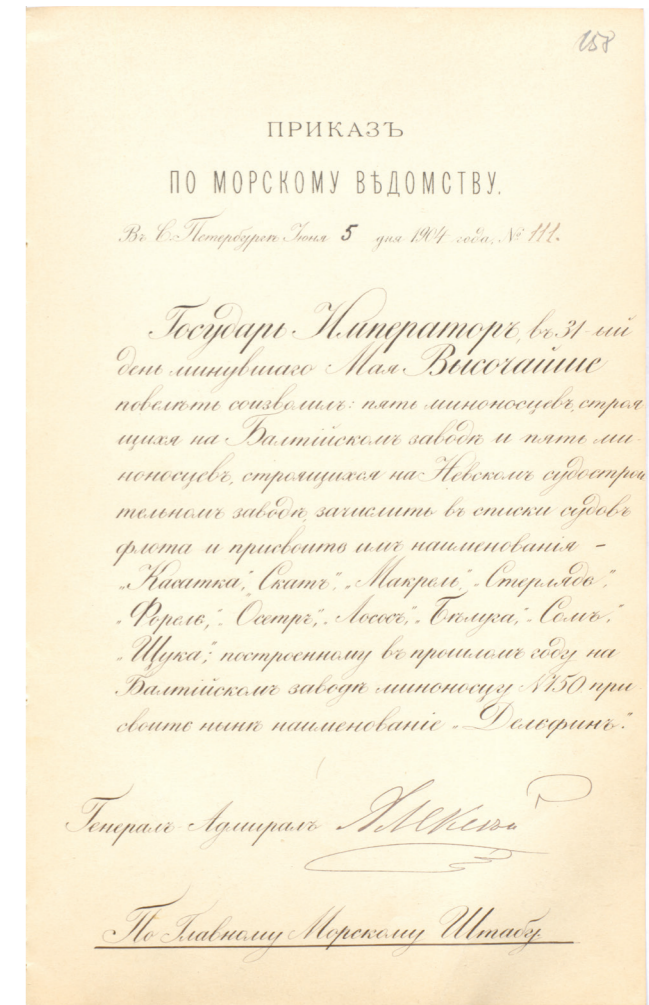 158
ПРИКАЗЪ
ПО МОРСКОМУ ВѢДОМСТВУ.
Въ С. Петербургѣ Іюня 5 дня 1904 года, № 111.
Государь Императоръ, въ 31-ый
день минувшаго Мая Высочайше
повелѣть соизволилъ: пять миноносцевъ, строя
щихся на Балтійскомъ заводѣ и пять ми-
ноносцевъ, строящихся на Невскомъ судострои
тельномъ заводѣ, зачислить въ списки судовъ
флота и присвоить имъ наименованія –
„Касатка“, „Скатъ“, „Макрель“, „Стерлядь“,
„Форель“, „Осетръ“, „Лосось“, „Бѣлуга“, „Сомъ“,
„Щука“; построенному въ прошломъ году на
Балтійскомъ заводѣ миноносцу №150 при
своить нынѣ наименованіе „Дельфинъ“.
Генералъ-Адмиралъ Алексѣй
По Главному Морскому Штабу.